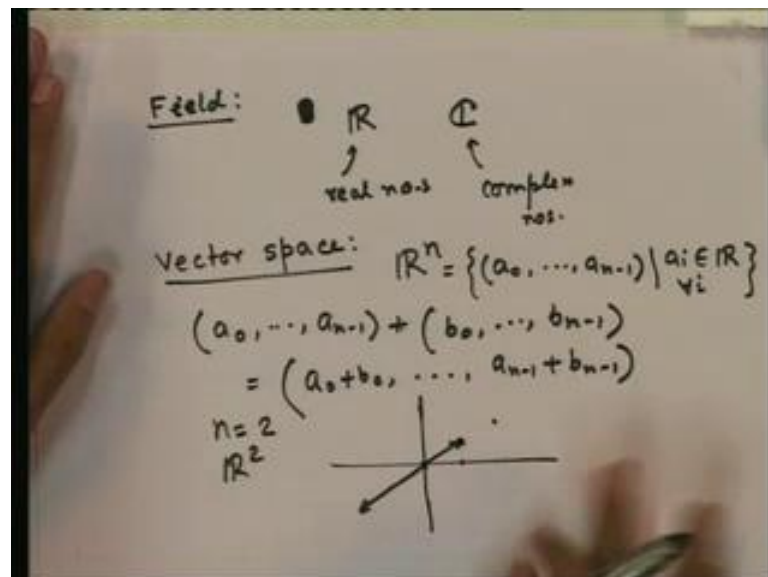 Field: ℝ ℂ
real no.s complex nos.
Vector space: ℝⁿ = {(a₀, ..., aₙ₋₁) | aᵢ ∈ ℝ ∀i}
(a₀, ..., aₙ₋₁) + (b₀, ..., bₙ₋₁)
= (a₀+b₀, ...., aₙ₋₁+bₙ₋₁)
n=2
ℝ²